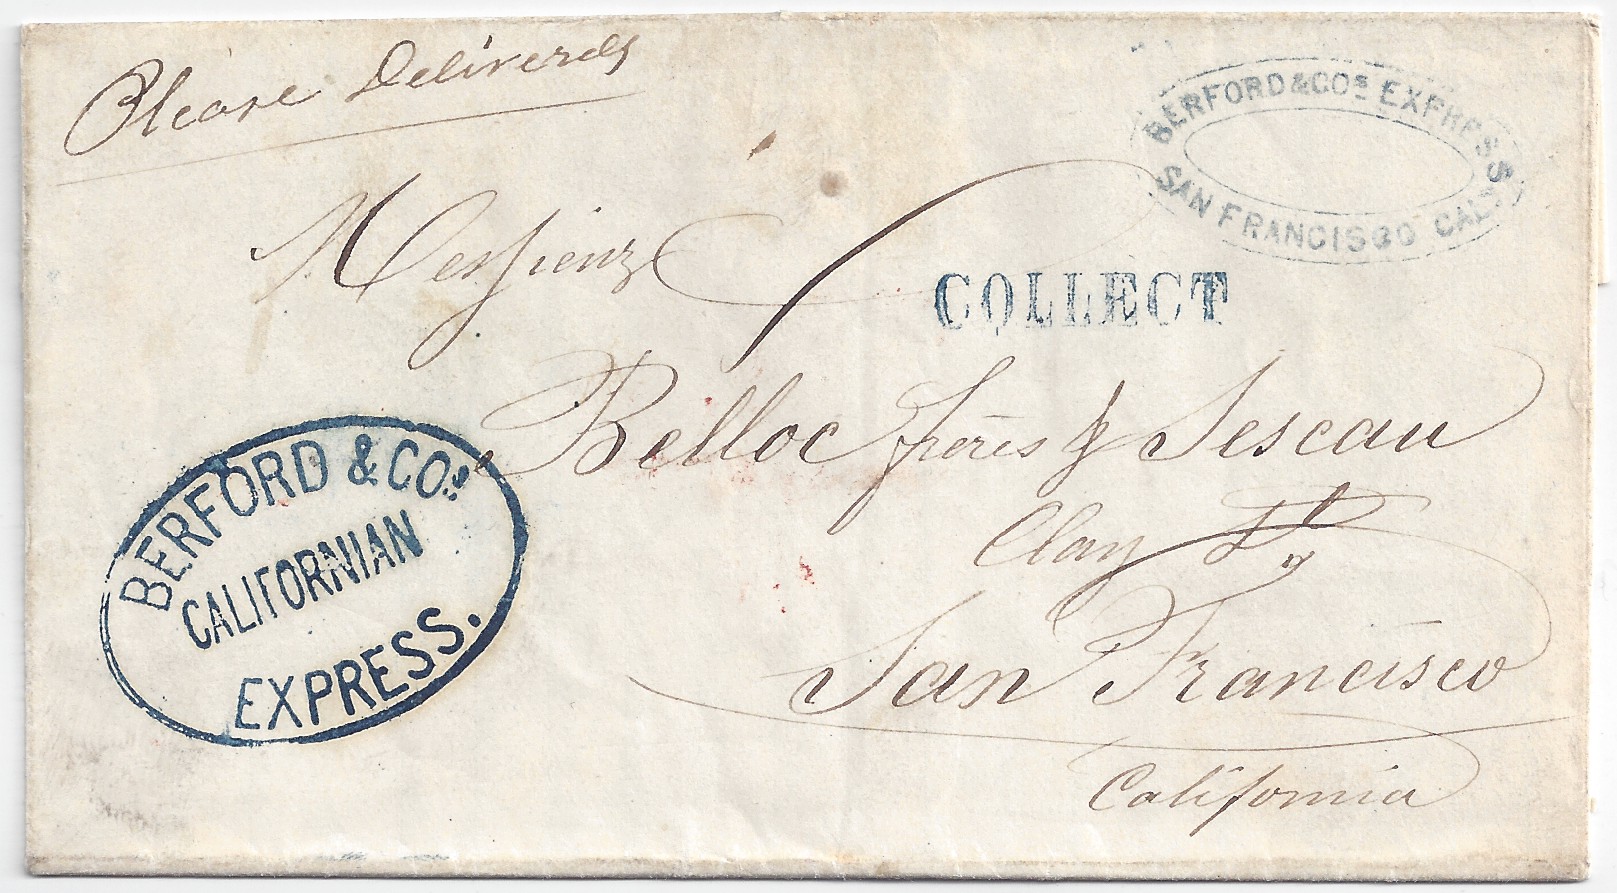 Please Deliver
BERFORD & COS EXPRESS
SAN FRANCISCO CALA
Messieurs
COLLECT
Belloc frères & Sescau
Clay St
San Francisco
California
BERFORD & COS.
CALIFORNIAN
EXPRESS.